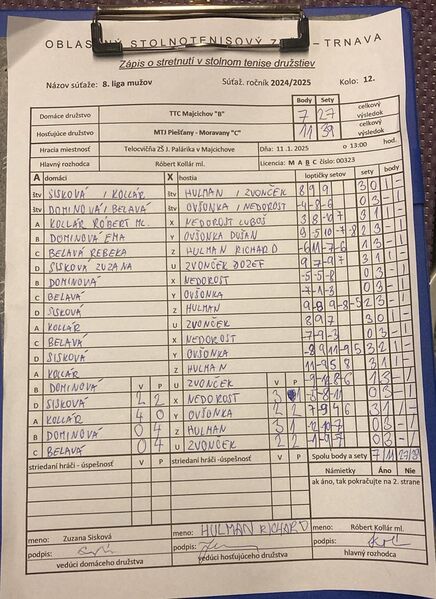 OBLASTNÝ STOLNOTENISOVÝ Z – TRNAVA
Zápis o stretnutí v stolnom tenise družstiev
Názov súťaže: 8. liga mužov Súťaž. ročník 2024/2025 Kolo: 12.
Body Sety
Domáce družstvo TTC Majcichov "B" 7 27 celkový výsledok
Hosťujúce družstvo MTJ Piešťany - Moravany "C" 11 39 celkový výsledok
Hracia miestnosť Telocvičňa ZŠ J. Palárika v Majcichove Dňa: 11.1.2025 o 13:00 hod.
Hlavný rozhodca Róbert Kollár ml. Licencia: M A B C číslo: 00323
A domáci X hostia loptičky setov sety body
štv SISKOVÁ / KOLLÁR štv HULMAN / ZVONČEK 8 9 9 3 0 1 -
štv DOMINOVÁ / BELAVÁ štv OVŠONKA / NEDOROST -4 -8 -6 0 3 - 1
A KOLLÁR RÓBERT ML. X NEDOROST ĽUBOŠ 3 1 1 -
B DOMINOVÁ EMA Y OVŠONKA DUŠAN
C BELAVÁ REBEKA Z HULMAN RICHARD -6 11 -7 -6 1 3 - 1
D SISKOVÁ ZUZANA U ZVONČEK JOZEF
B DOMINOVÁ X NEDOROST -5 -5 -8 0 3 - 1
C BELAVÁ Y OVŠONKA -7 -1 -3 0 3 - 1
D SISKOVÁ Z HULMAN
A KOLLÁR U ZVONČEK 8 9 7 3 0 1 -
C BELAVÁ X NEDOROST -7 -9 -3 0 3 - 1
D SISKOVÁ Y OVŠONKA -8 9 11 -9 5 3 2 1 -
A KOLLÁR Z HULMAN
B DOMINOVÁ V P U ZVONČEK V P
D SISKOVÁ 2 2 X NEDOROST 3 1
A KOLLÁR 4 0 Y OVŠONKA 2 2 3 1 1 -
B DOMINOVÁ 0 4 Z HULMAN 3 1 0 3 - 1
C BELAVÁ 0 4 U ZVONČEK 2 2 0 3 - 1
striedaní hráči - úspešnosť V P striedaní hráči - úspešnosť V P Spolu body a sety 7 11 27/39
Námietky Áno Nie
ak áno, tak pokračujte na 2. strane
meno: Zuzana Sisková meno: HULMAN RICHARD meno: Róbert Kollár ml.
podpis: podpis: podpis:
vedúci domáceho družstva vedúci hosťujúceho družstva hlavný rozhodca